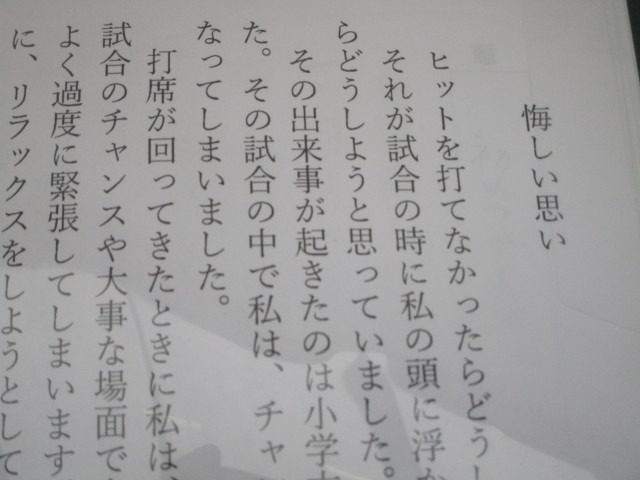 悔しい思い
ヒットを打てなかったらどうし
それが試合の時に私の頭に浮か
らどうしようと思っていました。
その出来事が起きたのは小学
た。その試合の中で私は、チャ
なってしまいました。
打席が回ってきたときに私は、
試合のチャンスや大事な場面で
よく過度に緊張してしまいます
に、リラックスをしようとして